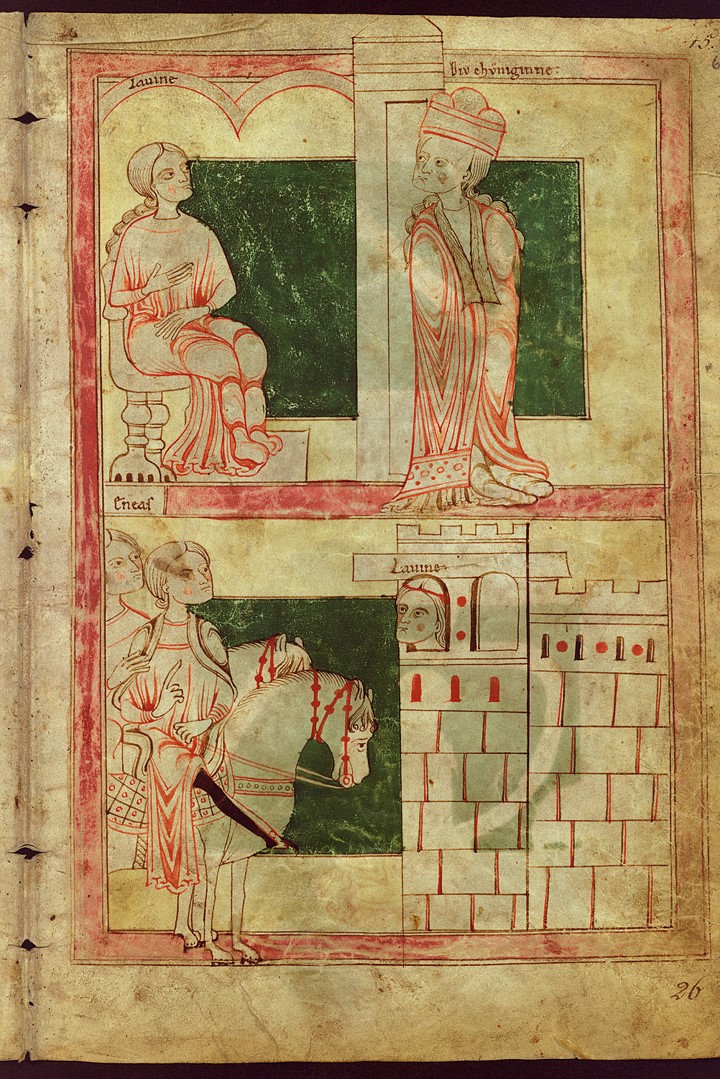 lauine
Div chůniginne:
Eneas
Lauine
26